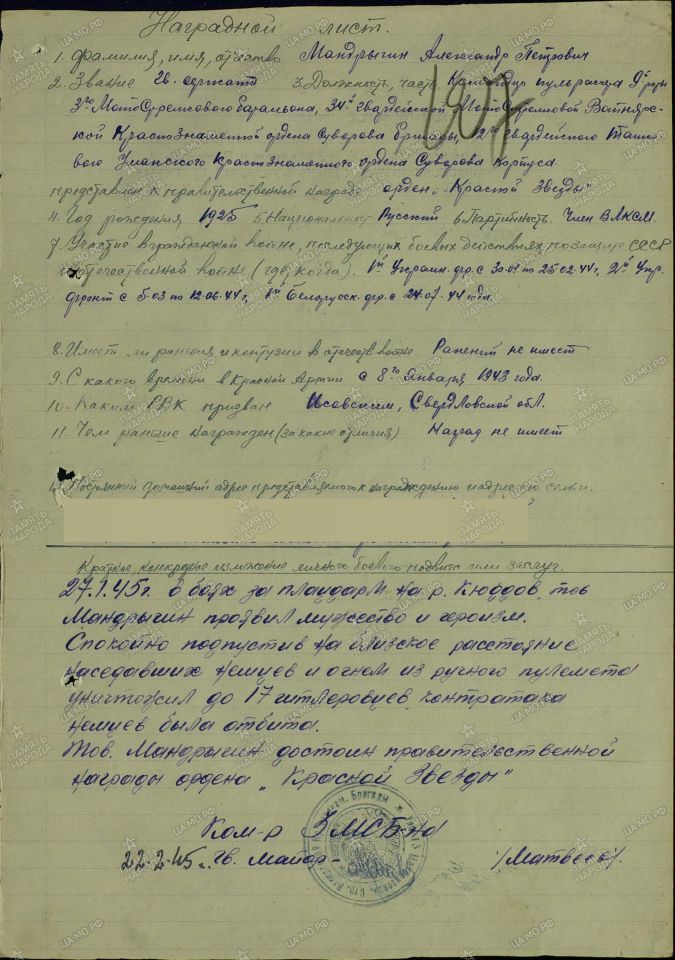 Наградной лист.
1. Фамилия, имя, отчество Мандрыгин Александр Петрович
2. Звание гв. сержант 3. Должность, часть Командир пульрасчета 9й роты
3го Мотострелкового батальона, 34й гвардейской Мотострелковой Вапнярс-
кой Краснознаменной ордена Суворова бригады, 12го гвардейского Танко-
вого Уманского Краснознаменного ордена Суворова корпуса
представлен к правительственной награде орден „Красной Звезды"
4. Год рождения 1925 5. Национальност Русский 6. Партийность. Член ВЛКСМ.
7. Участие в гражданской войне, последующих боевых действиях по защите СССР
и отечественной войне (где, когда). 1й Украин. фр. с 30.01 по 25.02.44 г, 2й Укр.
фронт с 5.03 по 12.06.44 г, 1й Белорусск. фр. с 24.07.44 года.
8. Имеет ли ранения и контузии в отечеств. войне. Ранений не имеет
9. С какого времени в Красной Армии с 8го Января 1943 года.
10. Каким РВК призван Исовским, Свердловской обл.
11. Чем раньше награжден (за какие отличия) Наград не имеет
12. Постоянный домашний адрес представляемого к награждению и адрес его семьи.
Краткое, конкредное изложение личного боевого подвига или заслуг.
27.1.45г. в боях за плацдарм на р. Кюддов, тов
Мандрыгин проявил мужество и героизм.
Спокойно подпустив на близкое расстояние
наседавших немцев и огнем из ручного пулемета
уничтожил до 17 гитлеровцев, контратака
немцев была отбита.
Тов. Мандрыгин достоин правительственной
награды ордена „Красной Звезды"
Ком-р 3 МСБ-на
22.2.45 г. гв. Майор- /Матвеев/.
ЦАМО.РФ
ПАМЯТЬ НАРОДА